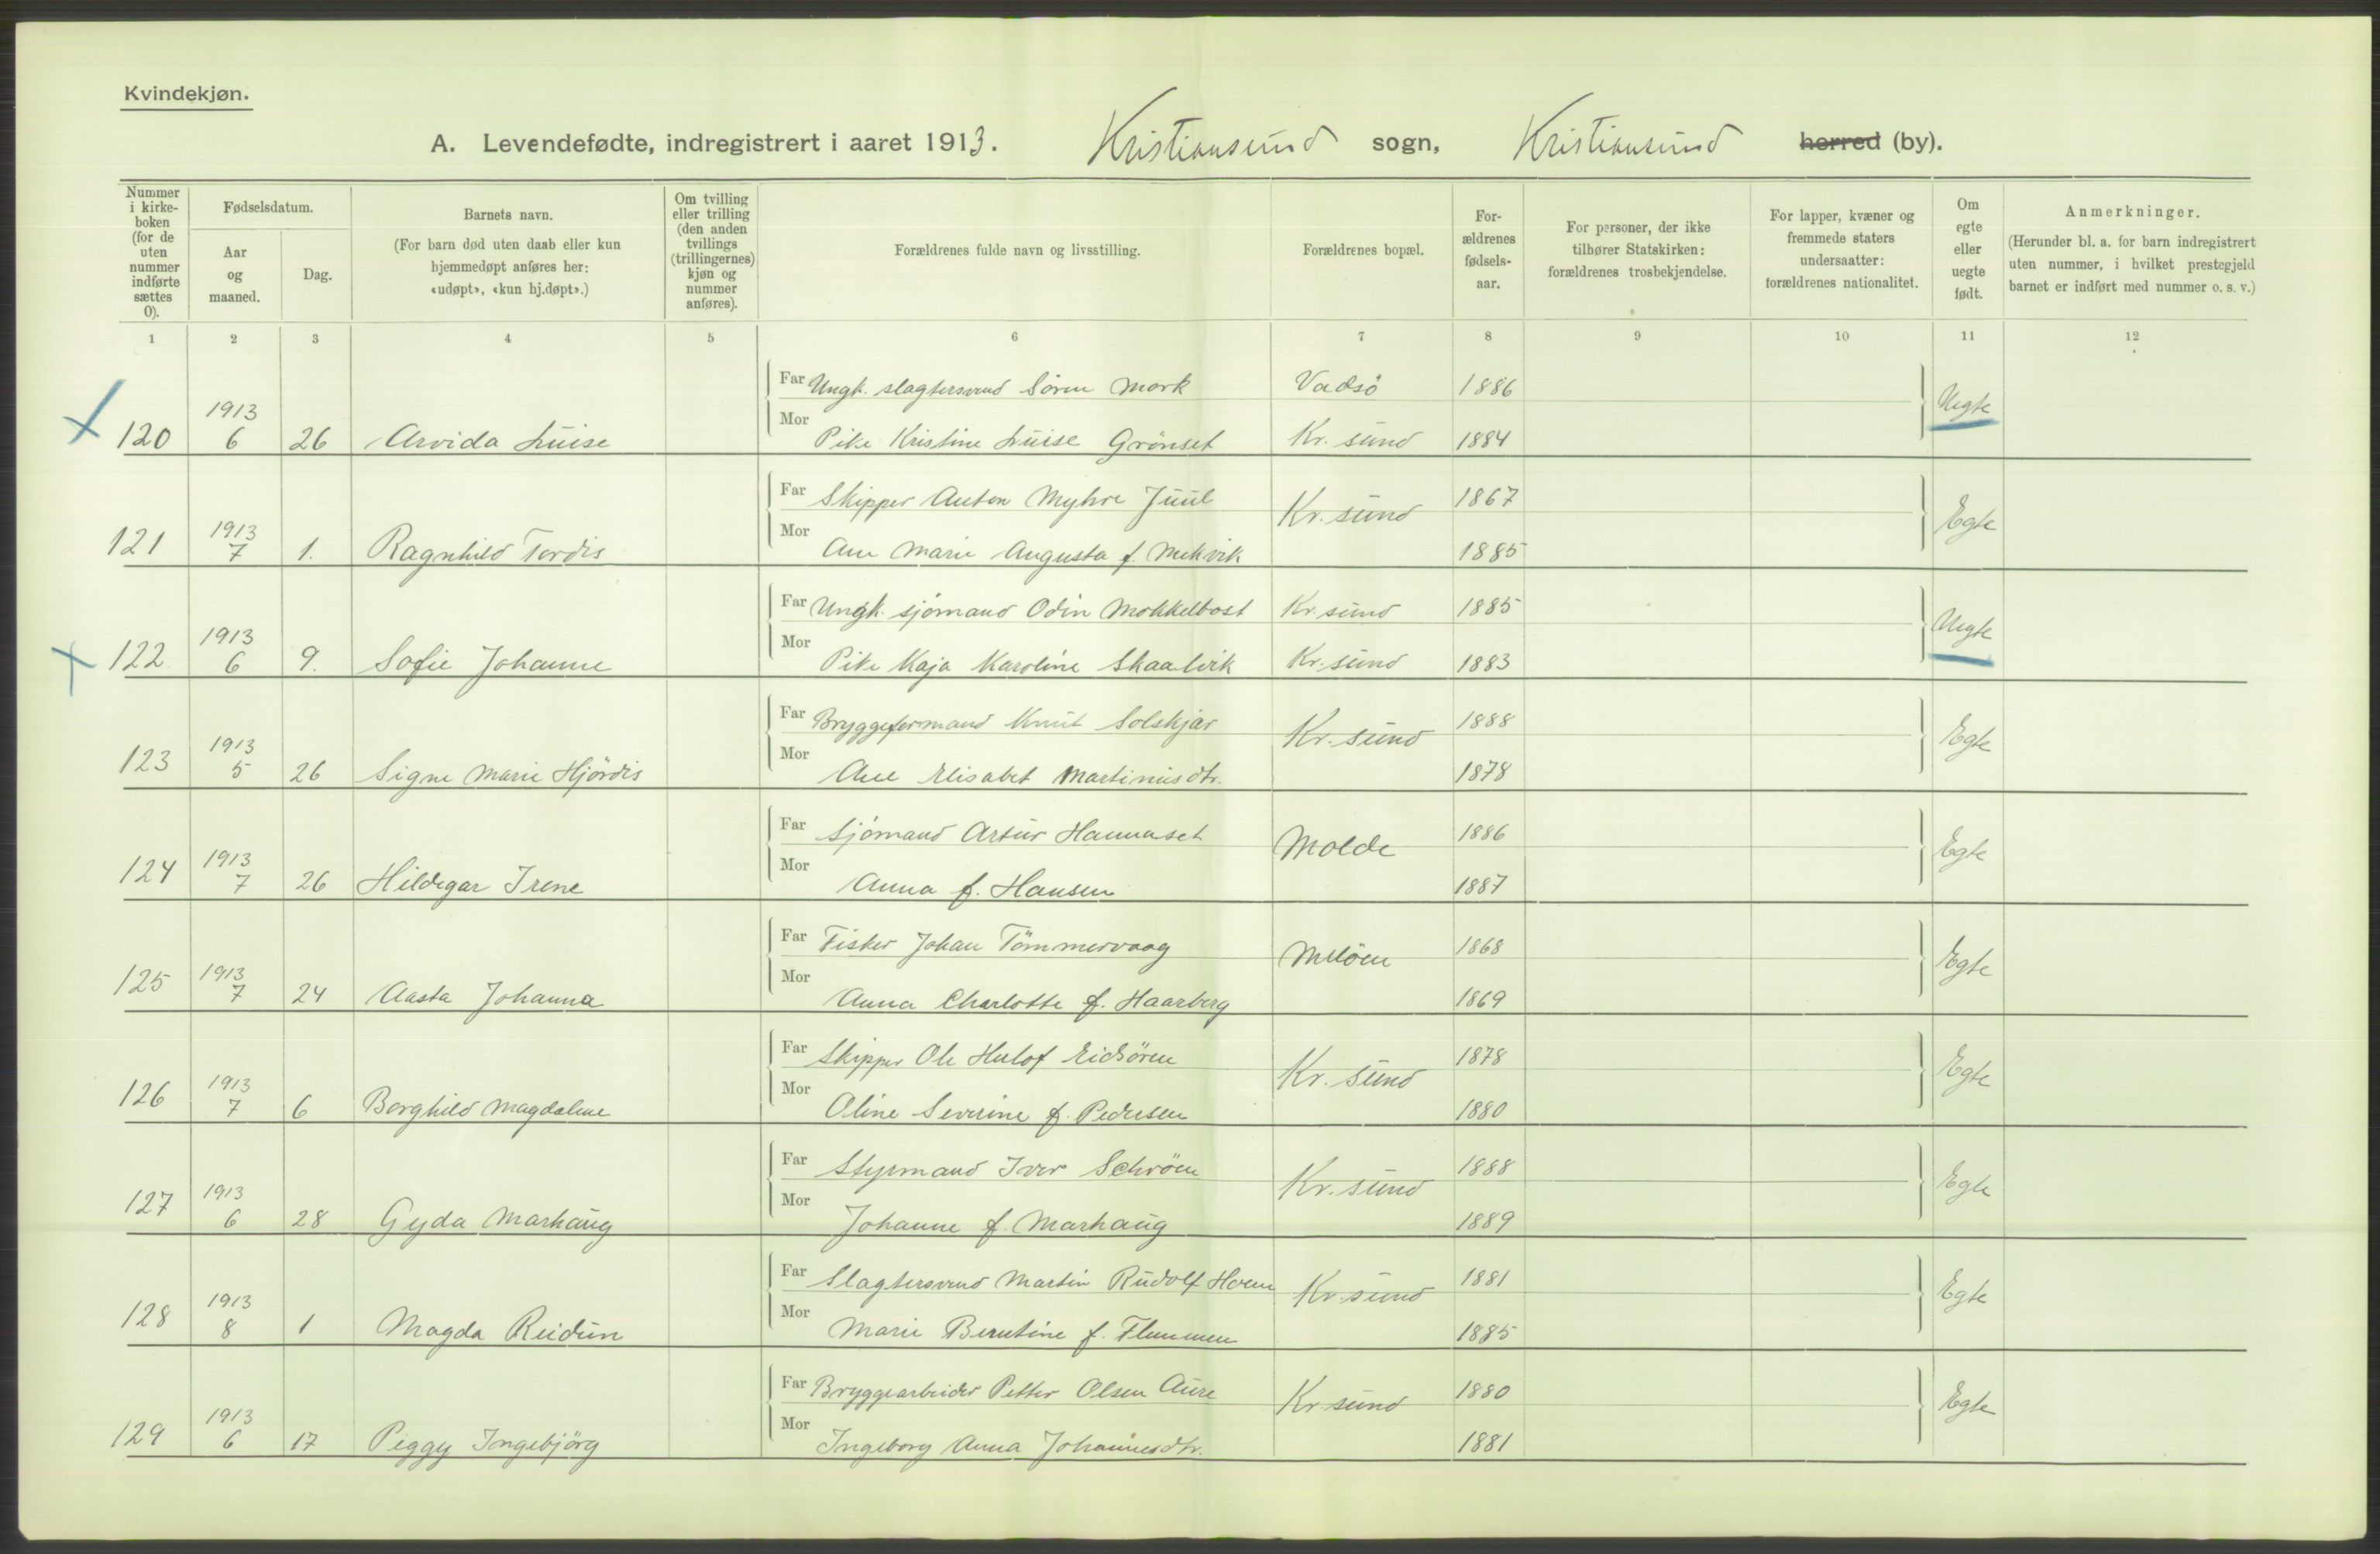 Kvindekjøn.
A. Levendefødte, indregistrert i aaret 1913. Kristiansund sogn, Kristiansund herred (by).
Nummer i kirke-boken (for de uten nummer indførte sættes 0).
Fødselsdatum.
Aar og maaned.
Dag.
Barnets navn.
(For barn død uten daab eller kun hjemmedøpt anføres her: «udøpt», «kun hj.døpt».)
Om tvilling eller trilling (den anden tvillings (trillingernes) kjøn og nummer anføres).
Forældrenes fulde navn og livsstilling.
Forældrenes bopæl.
For-ældrenes fødsels-aar.
For personer, der ikke tilhører Statskirken: forældrenes trosbekjendelse.
For lapper, kvæner og fremmede staters undersaatter: forældrenes nationalitet.
Om egte eller uegte født.
Anmerkninger.
(Herunder bl. a. for barn indregistrert uten nummer, i hvilket prestegjeld barnet er indført med nummer o. s. v.)
1 2 3 4 5 6 7 8 9 10 11 12
Far Ungk. slagtersvend Sören Mork Vadsö 1886
120 1913 6 26 Arvida Luise Uegte
Mor Pike Kristine Luise Grönset Kr. sund 1884
Far Skipper Anton Myhre Juul Kr. sund 1867
121 1913 7 1. Ragnhild Tordis Egte
Mor Ane Marie Augusta f. Mekvik 1885
Far Ungk. sjömand Odin Mokkelbost Kr. sund 1885
122 1913 6 9. Sofie Johanne Uegte
Mor Pike Kaja Karoline Skaalvik Kr. sund 1883
Far Bryggeformand Knut Solskjær Kr. sund 1888
123 1913 5 26 Signe Marie Hjördis Egte
Mor Ane Elisabet Martinusdtr. 1878
Far Sjömand Artur Hannaset Molde 1886
124 1913 7 26 Hildegar Irene Egte
Mor Anna f. Hansen 1887
Far Fisker Johan Tömmervaag 1868
125 1913 7 24 Aasta Johanna Egte
Mor Anna Charlotte f. Haarberg 1869
Far Skipper Ole Eidsören Kr. sund 1878
126 1913 7 6 Borghild Magdalene Egte
Mor Oline Severine f. Pedersen 1880
Far Styrmand Iver Schröen Kr. sund 1888
127 1913 6 28 Gyda Marhaug Egte
Mor Johanne f. Marhaug 1889
Far Slagtersvend Martin Rudolf Hoem Kr. sund 1881
128 1913 8 1 Magda Reidun Egte
Mor Marie Berntine f. Flemmen 1885
Far Bryggearbeider Petter Olsen Aure Kr. sund 1880
129 1913 6 17 Piggy Ingebjörg Egte
Mor Ingeborg Anna Johannesdtr. 1881